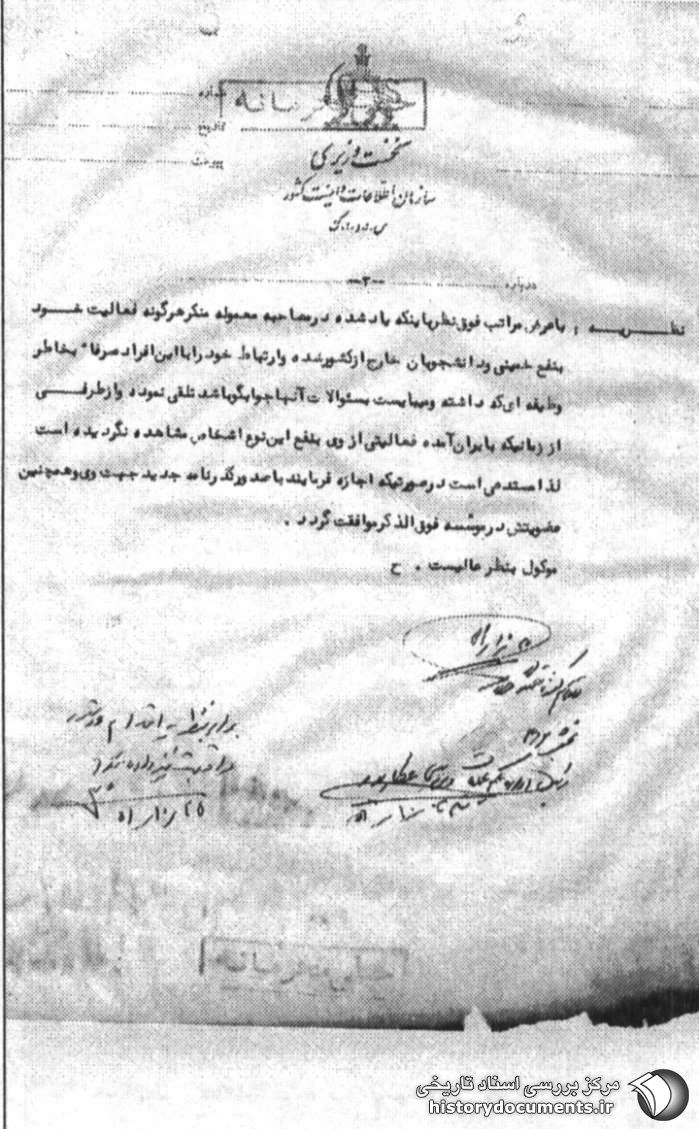 خیلی محرمانه
شماره
تاریخ
پیوست
نخست وزیری
سازمان اطلاعات و امنیت کشور
س.ا.و.ا.ک
درباره
-۲-
نظریه : باعرض مراتب فوق نظرباینکه یاد شده درمصاحبه معموله منکرهرگونه فعالیت خود
بنفع خمینی ودانشجویان خارج ازکشورشده وارتباط خودرابااین افراد صرفا" بخاطر
وظیفه ای که داشته ومیبایست بسئوالات آنهاجوابگوباشد تلقی نموده وازطرفی
از زمانیکه بایران آمده فعالیتی از وی بنفع این نوع اشخاص مشاهده نگردیده است
لذا مستدعی است درصورتیکه اجازه فرمایند باصدورگذرنامه جدید جهت وی وهمچنین
عضویتش درموسسه فوق الذکر موافقت گردد .
موکول بنظر عالیست . ح
خیلی محرمانه
مرکز بررسی اسناد تاریخی
historydocuments.ir